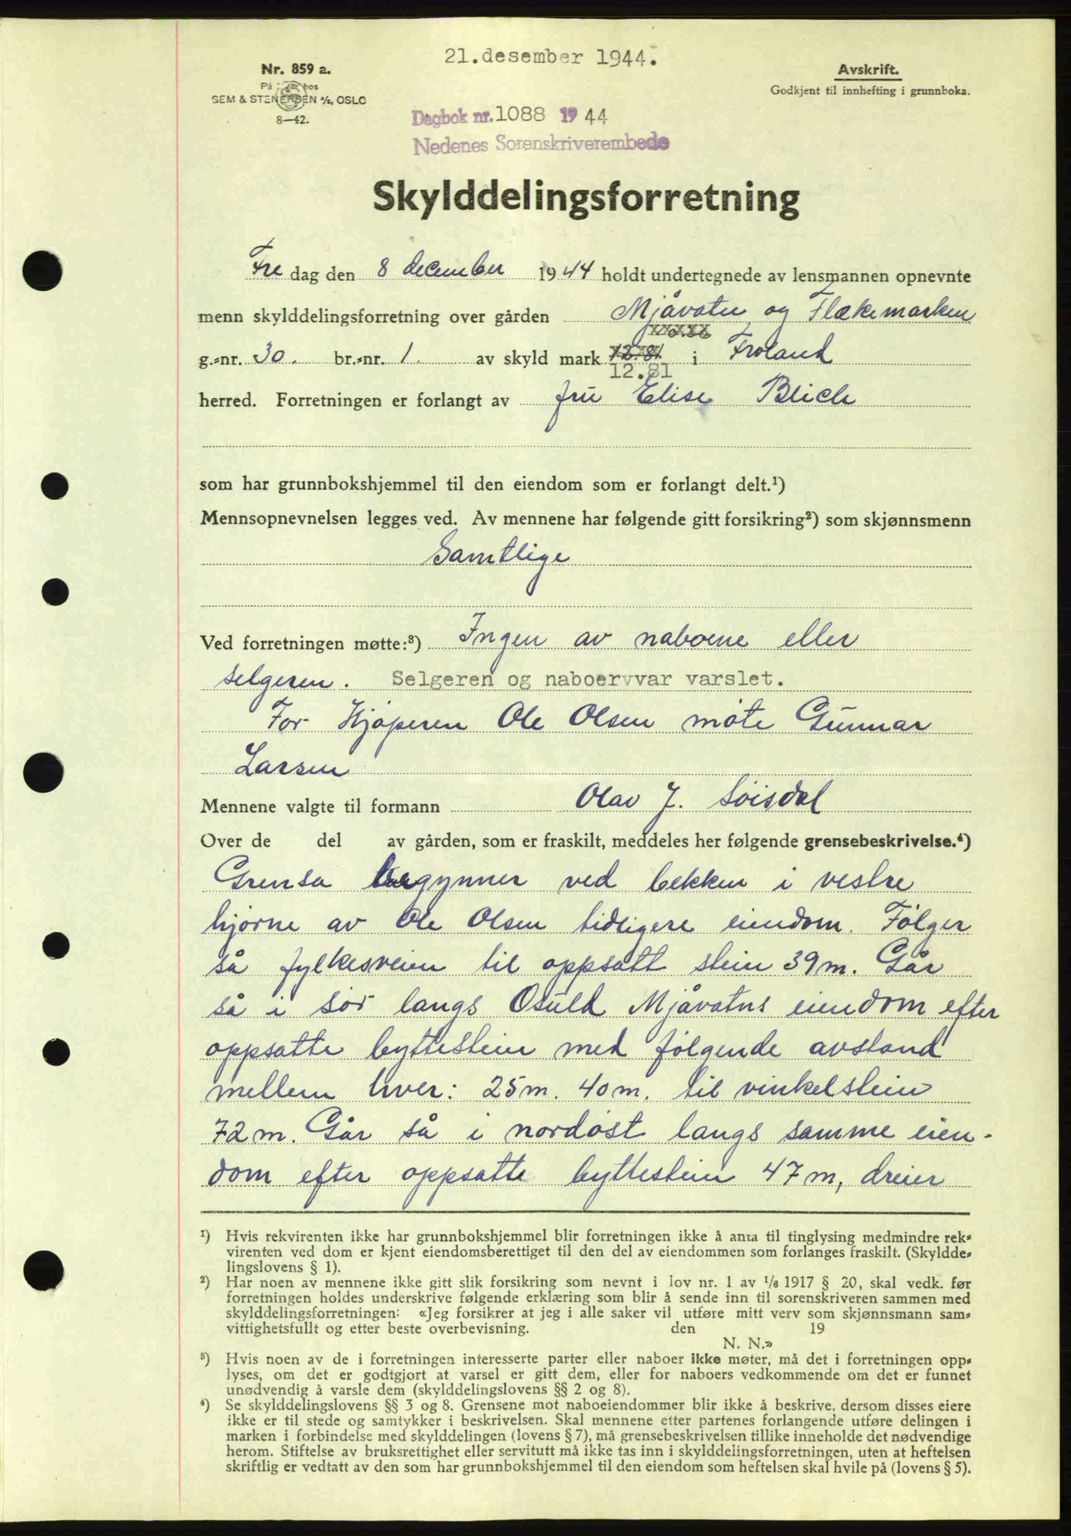 21.desember 1944.
Nr. 859 a.
På lager hos
SEM & STENERSEN A/S, OSLO
8—42.
Avskrift.
Godkjent til innhefting i grunnboka.
Dagbok nr. 1088 1944
Nedenes Sorenskriverembede
Skylddelingsforretning
Fre dag den 8 december 1944 holdt undertegnede av lensmannen opnevnte
menn skylddelingsforretning over gården Mjåvatn og Flækemarken
g.=nr. 30. br.=nr. 1. av skyld mark 12.81 i Froland
12.81
herred. Forretningen er forlangt av fru Elise Blich
som har grunnbokshjemmel til den eiendom som er forlangt delt.¹)
Mennsopnevnelsen legges ved. Av mennene har følgende gitt forsikring²) som skjønnsmenn
Samtlige
Ved forretningen møtte:³) Ingen av naboene eller
selgeren. Selgeren og naboervvar varslet.
For Kjøperen Ole Olsen møte Gunnar
Larsen
Mennene valgte til formann Olav J. Løisdal
Over de del av gården, som er fraskilt, meddeles her følgende grensebeskrivelse.⁴)
Grensa begynner ved bekken i vestre
hjørne av Ole Olsen tidligere eiendom. Følger
så fylkesveien til oppsatt stein 39m. Går
så i sør langs Osuld Mjåvatns eiendom efter
oppsatte byttestein med følgende avstand
mellem hver: 25m. 40m. til vinkelstein
72m. Går så i nordøst langs samme eien-
dom efter oppsatte byttestein 47m, dreier
¹) Hvis rekvirenten ikke har grunnbokshjemmel blir forretningen ikke å anta til tinglysing medmindre rek=
virenten ved dom er kjent eiendomsberettiget til den del av eiendommen som forlanges fraskilt. (Skyldde=
lingslovens § 1).
²) Har noen av mennene ikke gitt slik forsikring som nevnt i lov nr. 1 av 1/6 1917 § 20, skal vedk. før
forretningen holdes underskrive følgende erklæring som blir å sende inn til sorenskriveren sammen med
skylddelingsforretningen: «Jeg forsikrer at jeg i alle saker vil utføre mitt verv som skjønnsmann sam=
vittighetsfullt og etter beste overbevisning. den 19
N. N.»
³) Hvis noen av de i forretningen interesserte parter eller naboer ikke møter, må det i forretningen opp=
lyses, om det er godtgjort at varsel er gitt dem, eller for naboers vedkommende om det er funnet
unødvendig å varsle dem (skylddelingslovens §§ 2 og 8).
⁴) Se skylddelingslovens §§ 3 og 8. Grensene mot naboeiendommer blir ikke å beskrive, dersom disses eiere
ikke er til stede og samtykker i beskrivelsen. Skal mennene etter partenes forlangende utføre delingen i
marken i forbindelse med skylddelingen (lovens § 7), må grensebeskrivelsen tillike inneholde det nødvendige
herom. Stiftelse av bruksrettighet eller servitutt må ikke tas inn i skylddelingsforretningen, uten at heftelsen
skriftlig er vedtatt av den som har grunnbokshjemmel til den eiendom som heftelsen skal hvile på (lovens § 5).